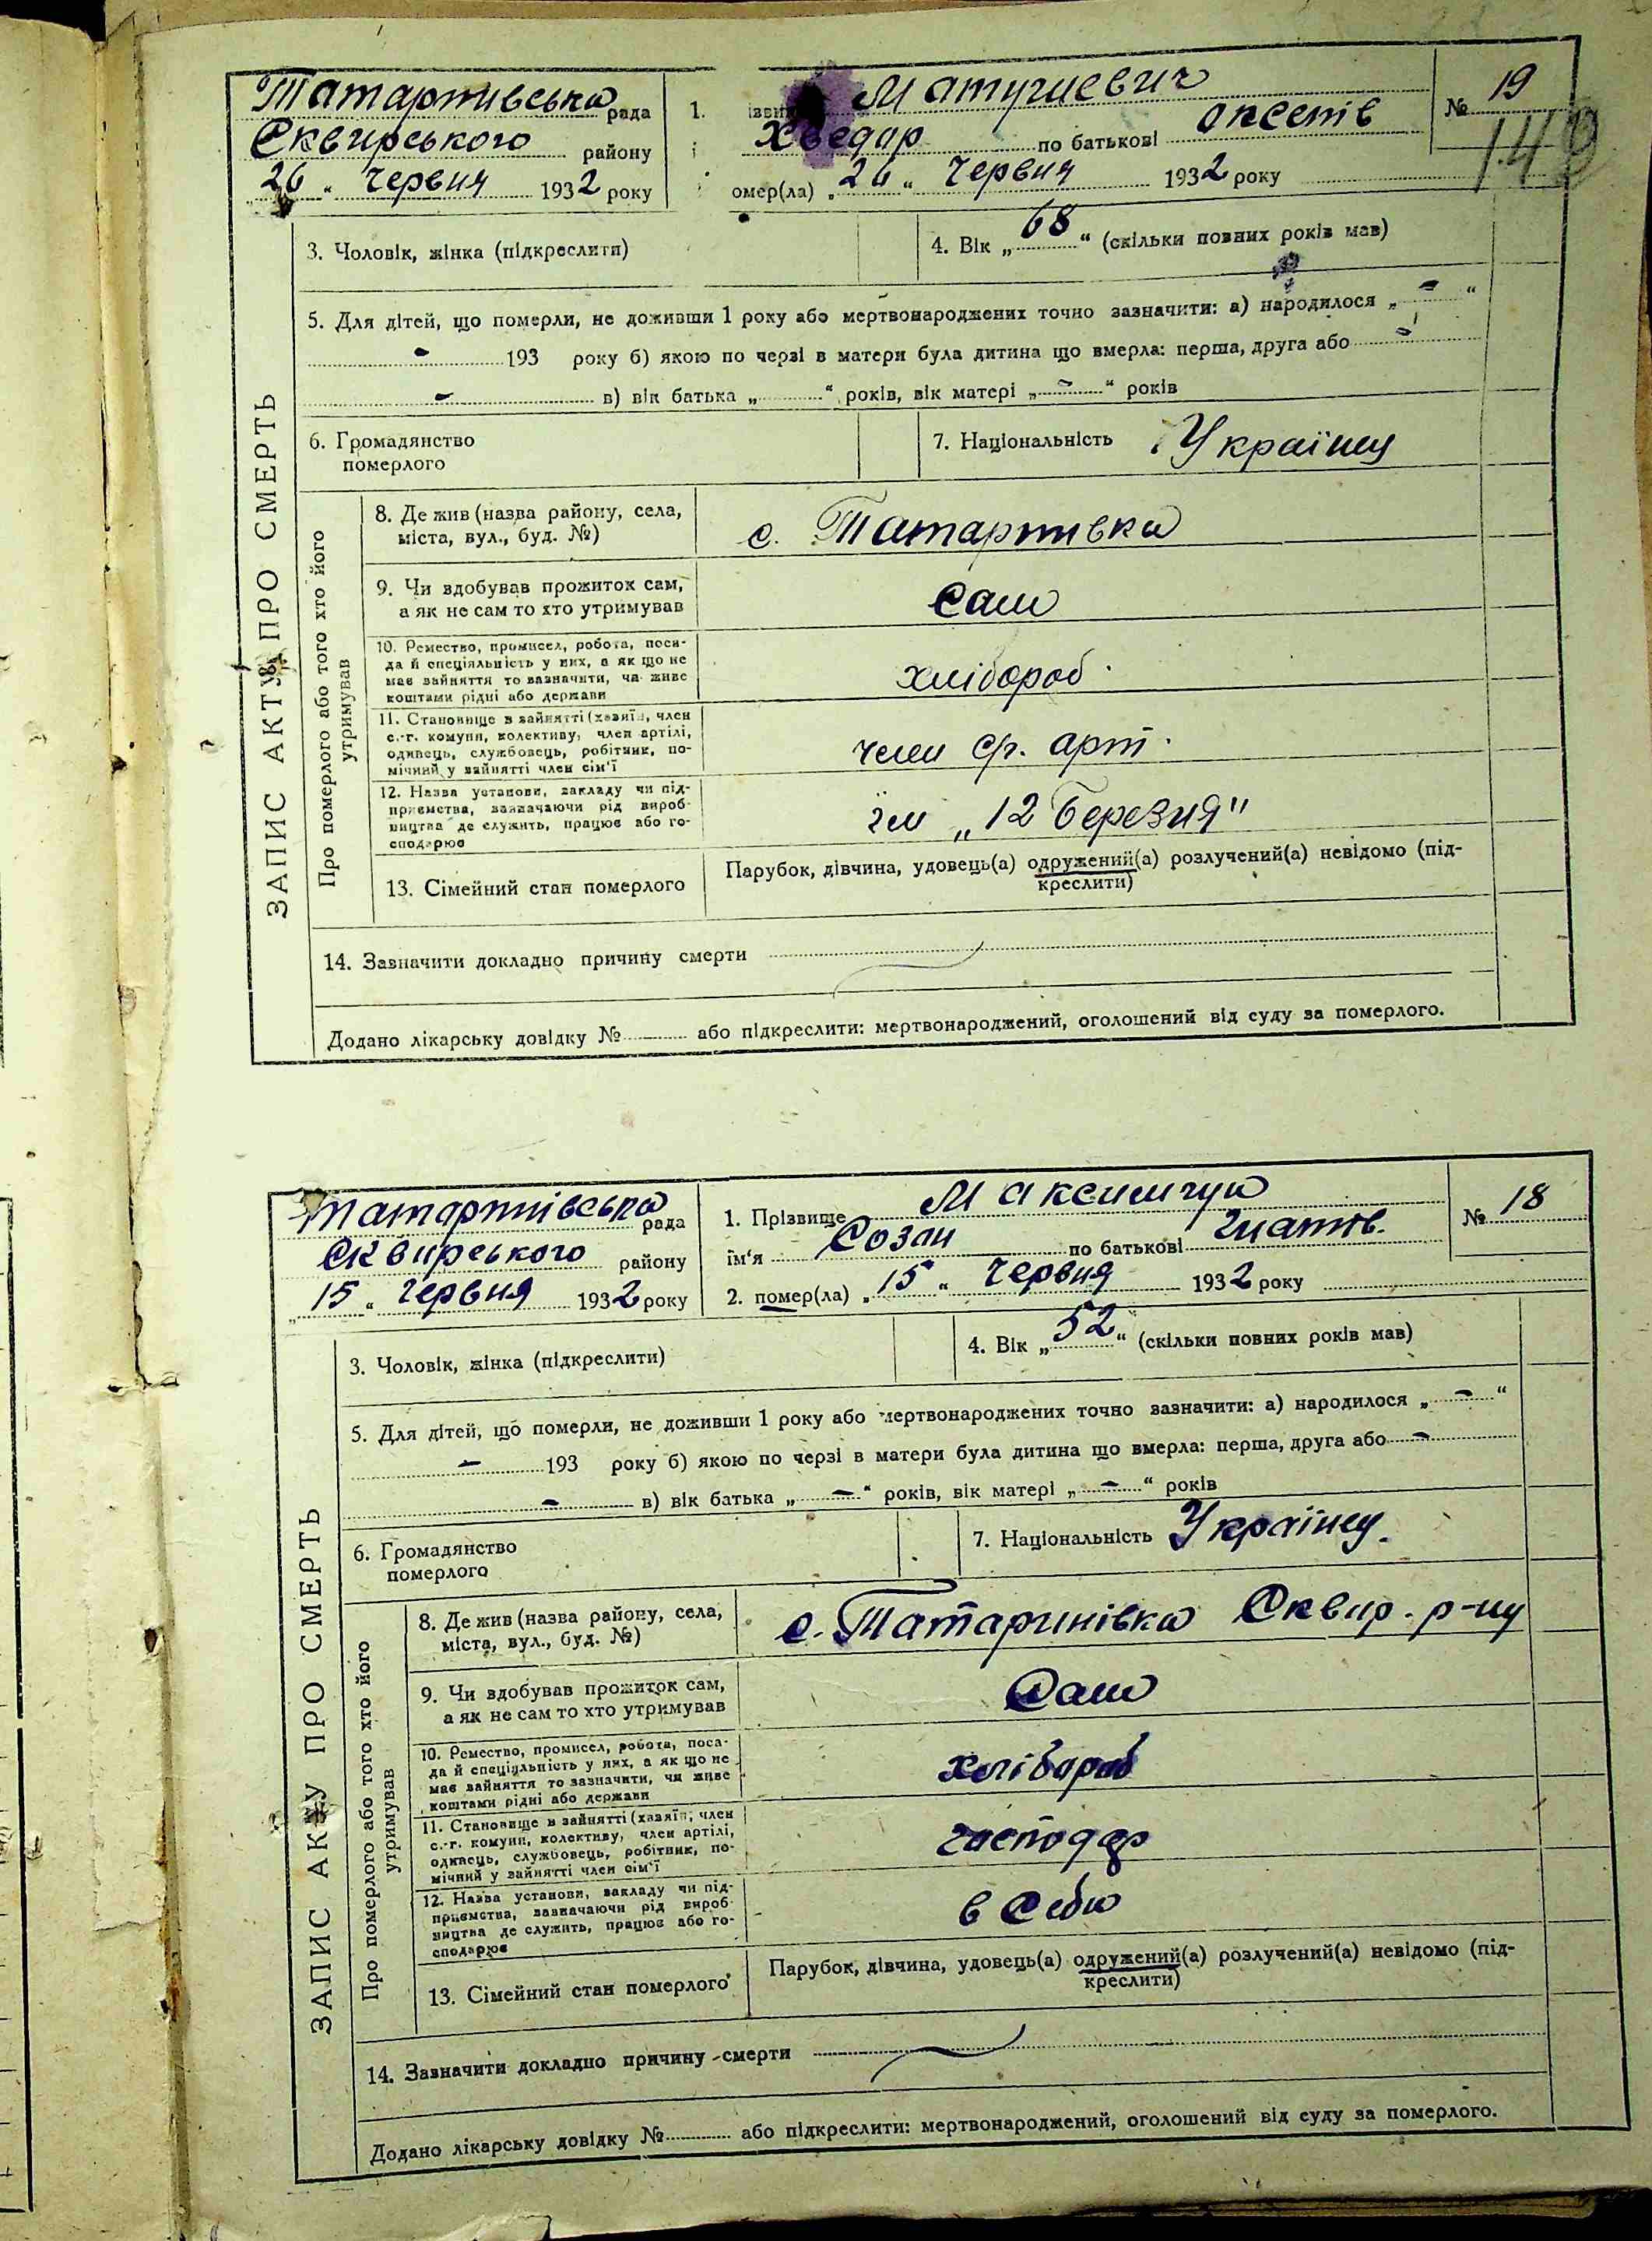 Татартивська рада
Сквирського району
26 „ Червня 1932 року
1. Матушевич
Хведор по батькові
№ 19
149
омер(ла) „26“ Червня 1932 року
3. Чоловік, жінка (підкреслити)
4. Вік „68“ (скільки повних років мав)
5. Для дітей, що померли, не доживши 1 року або мертвонароджених точно зазначити: а) народилося „-“
- 193 року б) якою по черзі в матери була дитина що вмерла: перша, друга або -
- в) вік батька „ “ років, вік матері „-“ років
6. Громадянство
померлого
7. Національність Українец
ЗАПИС АКТУ ПРО СМЕРТЬ
Про померлого або того хто його
утримував
8. Де жив (назва району, села,
міста, вул., буд. №)
с. Татартивка
9. Чи вдобував прожиток сам,
а як не сам то хто утримував
Сам
10. Ремество, промисел, робота, поса-
да й спеціяльність у них, а як що не
має зайняття то зазначити, чи живе
коштами рідні або держави
хлібороб
11. Становище в зайнятті (хазяїн, член
с.-г. комуни, колективу, член артілі,
одинець, службовець, робітник, по-
мічний у зайнятті член сім'ї
член с/г. арт.
12. Назва установи, закладу чи під-
приємства, зазначаючи рід вироб-
ництва де служить, працює або го-
сподарює
ім „12 Березня"
13. Сімейний стан померлого
Парубок, дівчина, удовець(а) одружений(а) розлучений(а) невідомо (під-
креслити)
14. Зазначити докладно причину смерти
Додано лікарську довідку № або підкреслити: мертвонароджений, оголошений від суду за померлого.
Татартнівська рада
Сквирського району
„15 „ Червня 1932 року
1. Прізвище Максимчук
ім'я Созан по батькові Гнатів.
№ 18
2. помер(ла) „15“ Червня 1932 року
3. Чоловік, жінка (підкреслити)
4. Вік „52“ (скільки повних років мав)
5. Для дітей, що померли, не доживши 1 року або мертвонароджених точно зазначити: а) народилося „-“
- 193 року б) якою по черзі в матери була дитина що вмерла: перша, друга або -
- в) вік батька „-“ років, вік матері „-“ років
6. Громадянство
померлого
7. Національність Українец.
ЗАПИС АКТУ ПРО СМЕРТЬ
Про померлого або того хто його
утримував
8. Де жив (назва району, села,
міста, вул., буд. №)
с. Татаринівка Сквир. р-ну
9. Чи вдобував прожиток сам,
а як не сам то хто утримував
Сам
10. Ремество, промисел, робота, поса-
да й спеціяльність у них, а як що не
має зайняття то зазначити, чи живе
коштами рідні або держави
хлібороб
11. Становище в зайнятті (хазяїн, член
с.-г. комуни, колективу, член артілі,
одинець, службовець, робітник, по-
мічний у зайнятті член сім'ї
господар
12. Назва установи, закладу чи під-
приємства, зазначаючи рід вироб-
ництва де служить, працює або го-
сподарює
в Себе
13. Сімейний стан померлого
Парубок, дівчина, удовець(а) одружений(а) розлучений(а) невідомо (під-
креслити)
14. Зазначити докладно причину смерти
Додано лікарську довідку № або підкреслити: мертвонароджений, оголошений від суду за померлого.